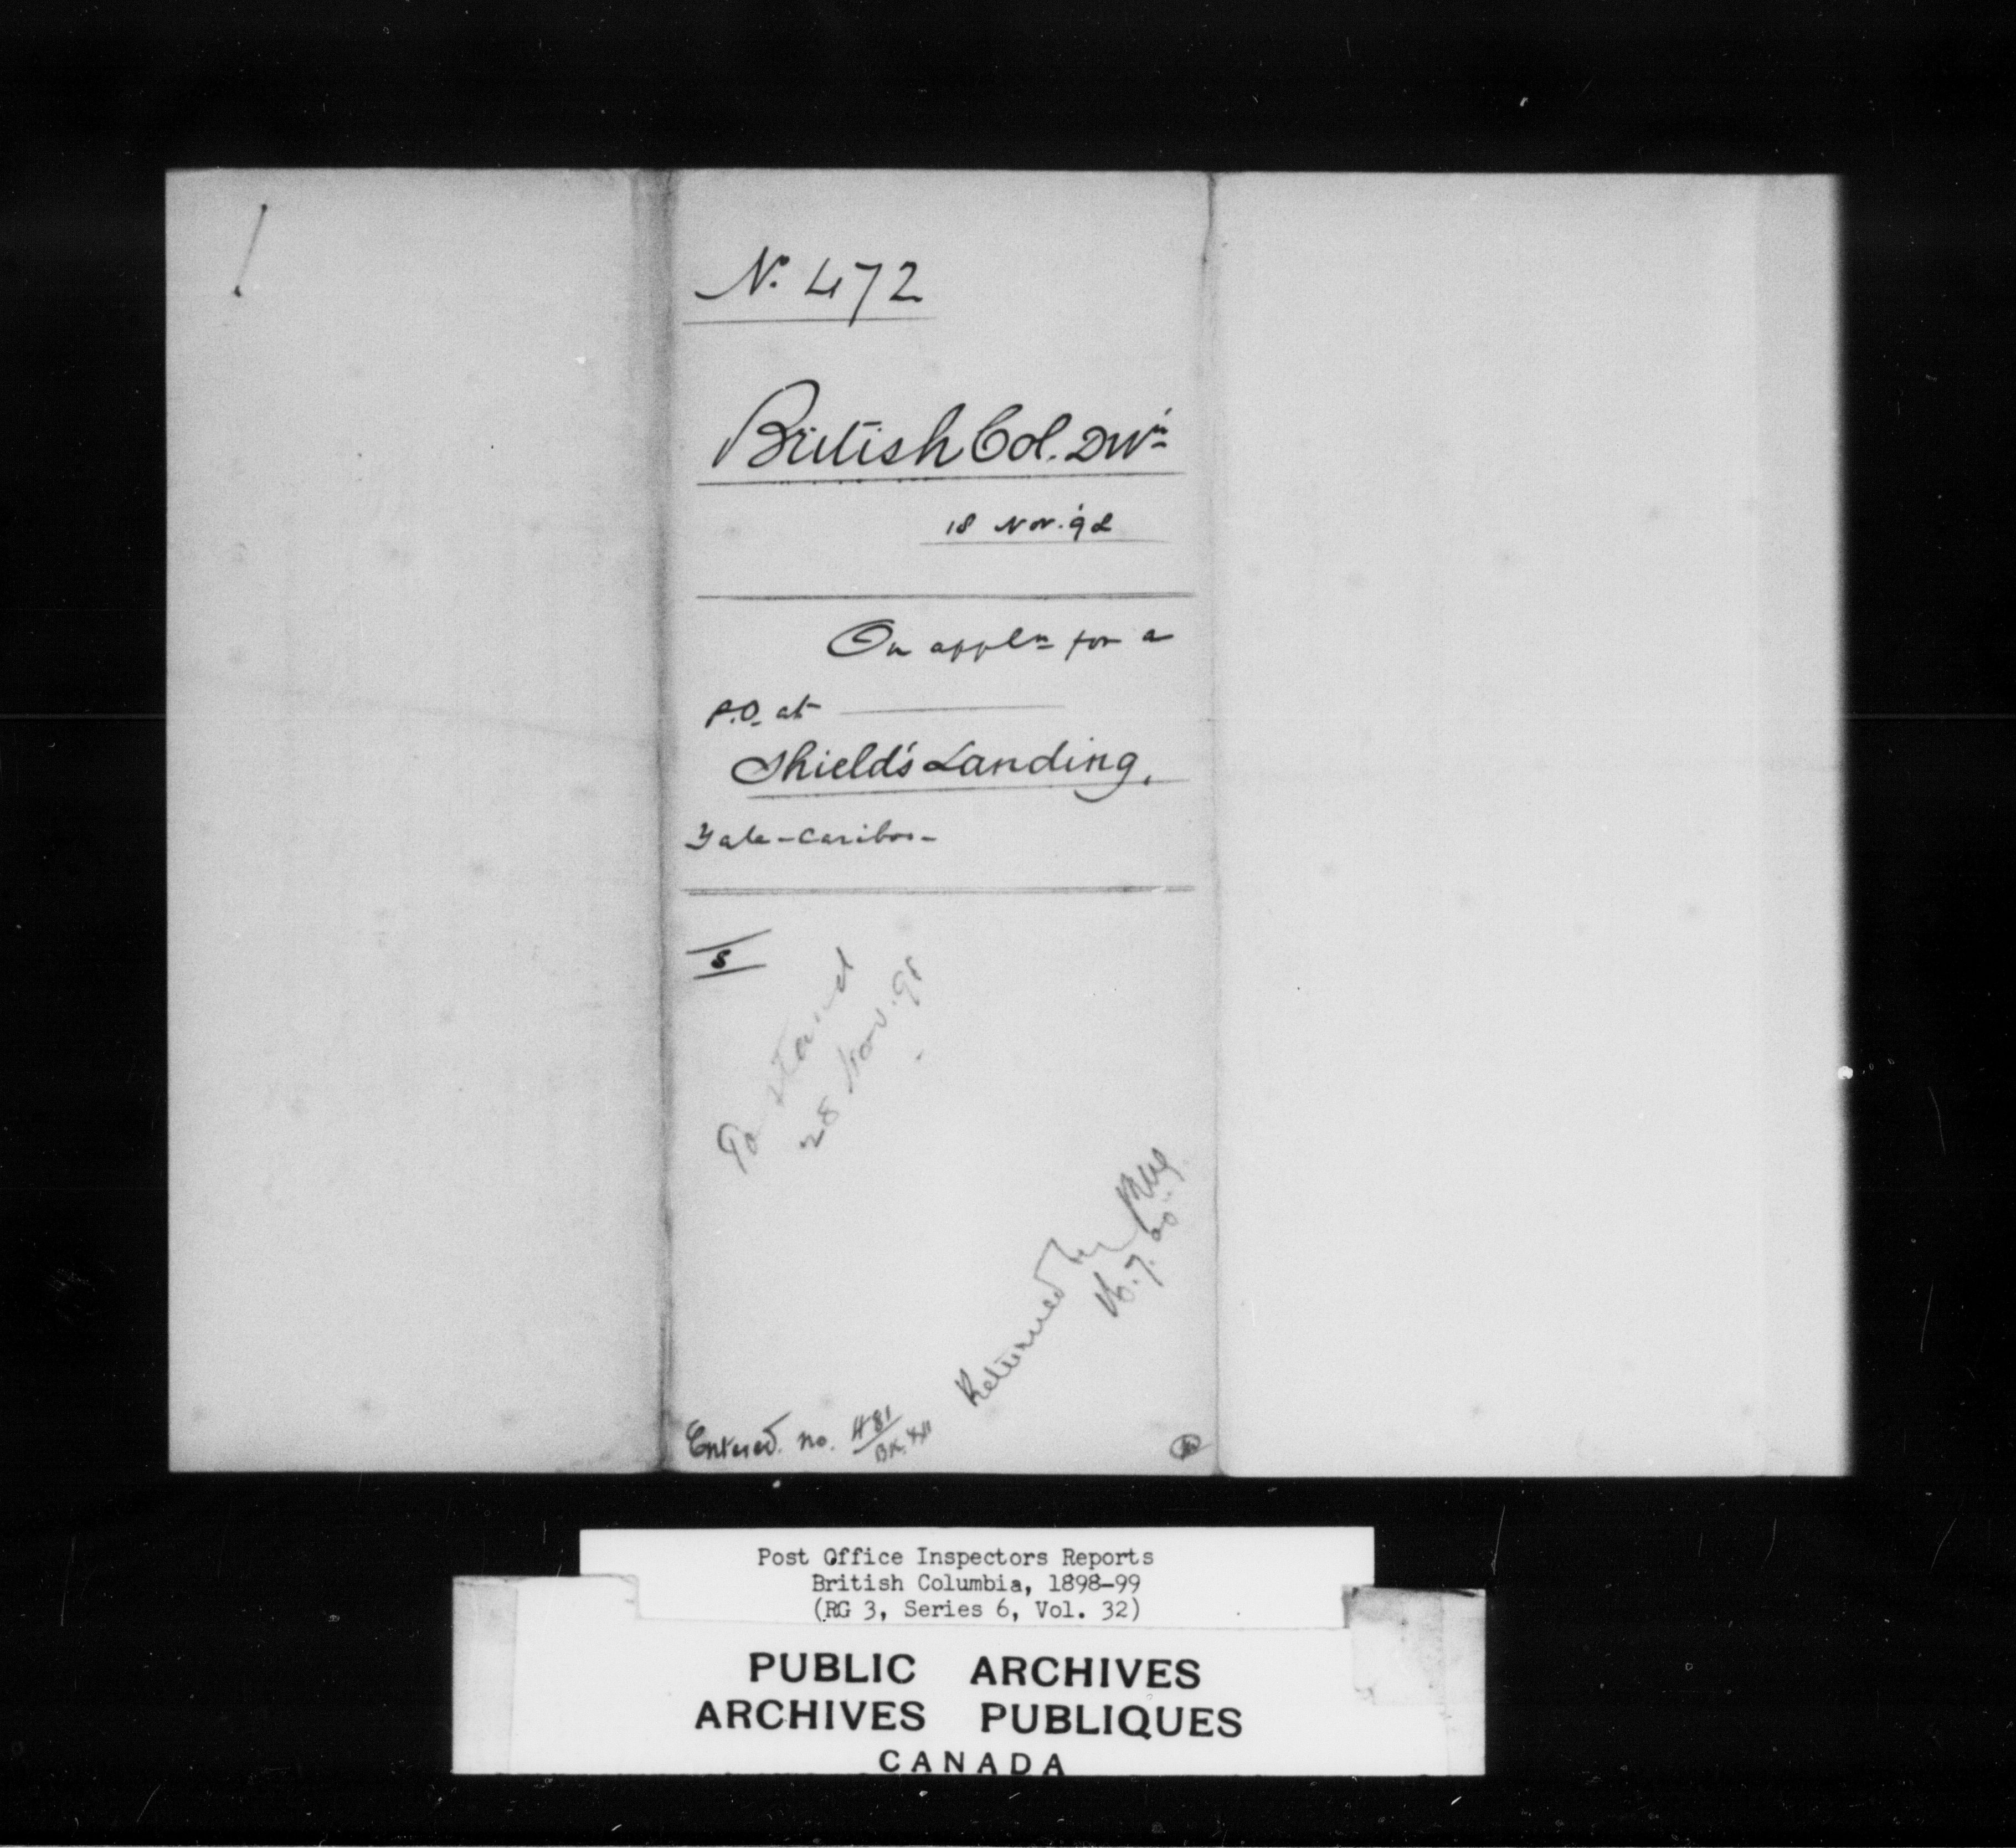 No. 472
British Col. Divn
18 Nov. '98
On appln for a
P.O. at
Shield's Landing,
Yale-Cariboo-
S
To stand
28 Nov. 98
Returned by
16.7.00
Entered. no. 481
BK.
Post Office Inspectors Reports
British Columbia, 1898-99
(RG 3, Series 6, Vol. 32)
PUBLIC ARCHIVES
ARCHIVES PUBLIQUES
CANADA